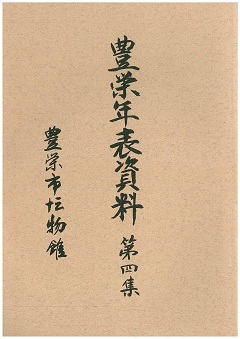 豊栄年表資料
第四集
豊栄市博物館